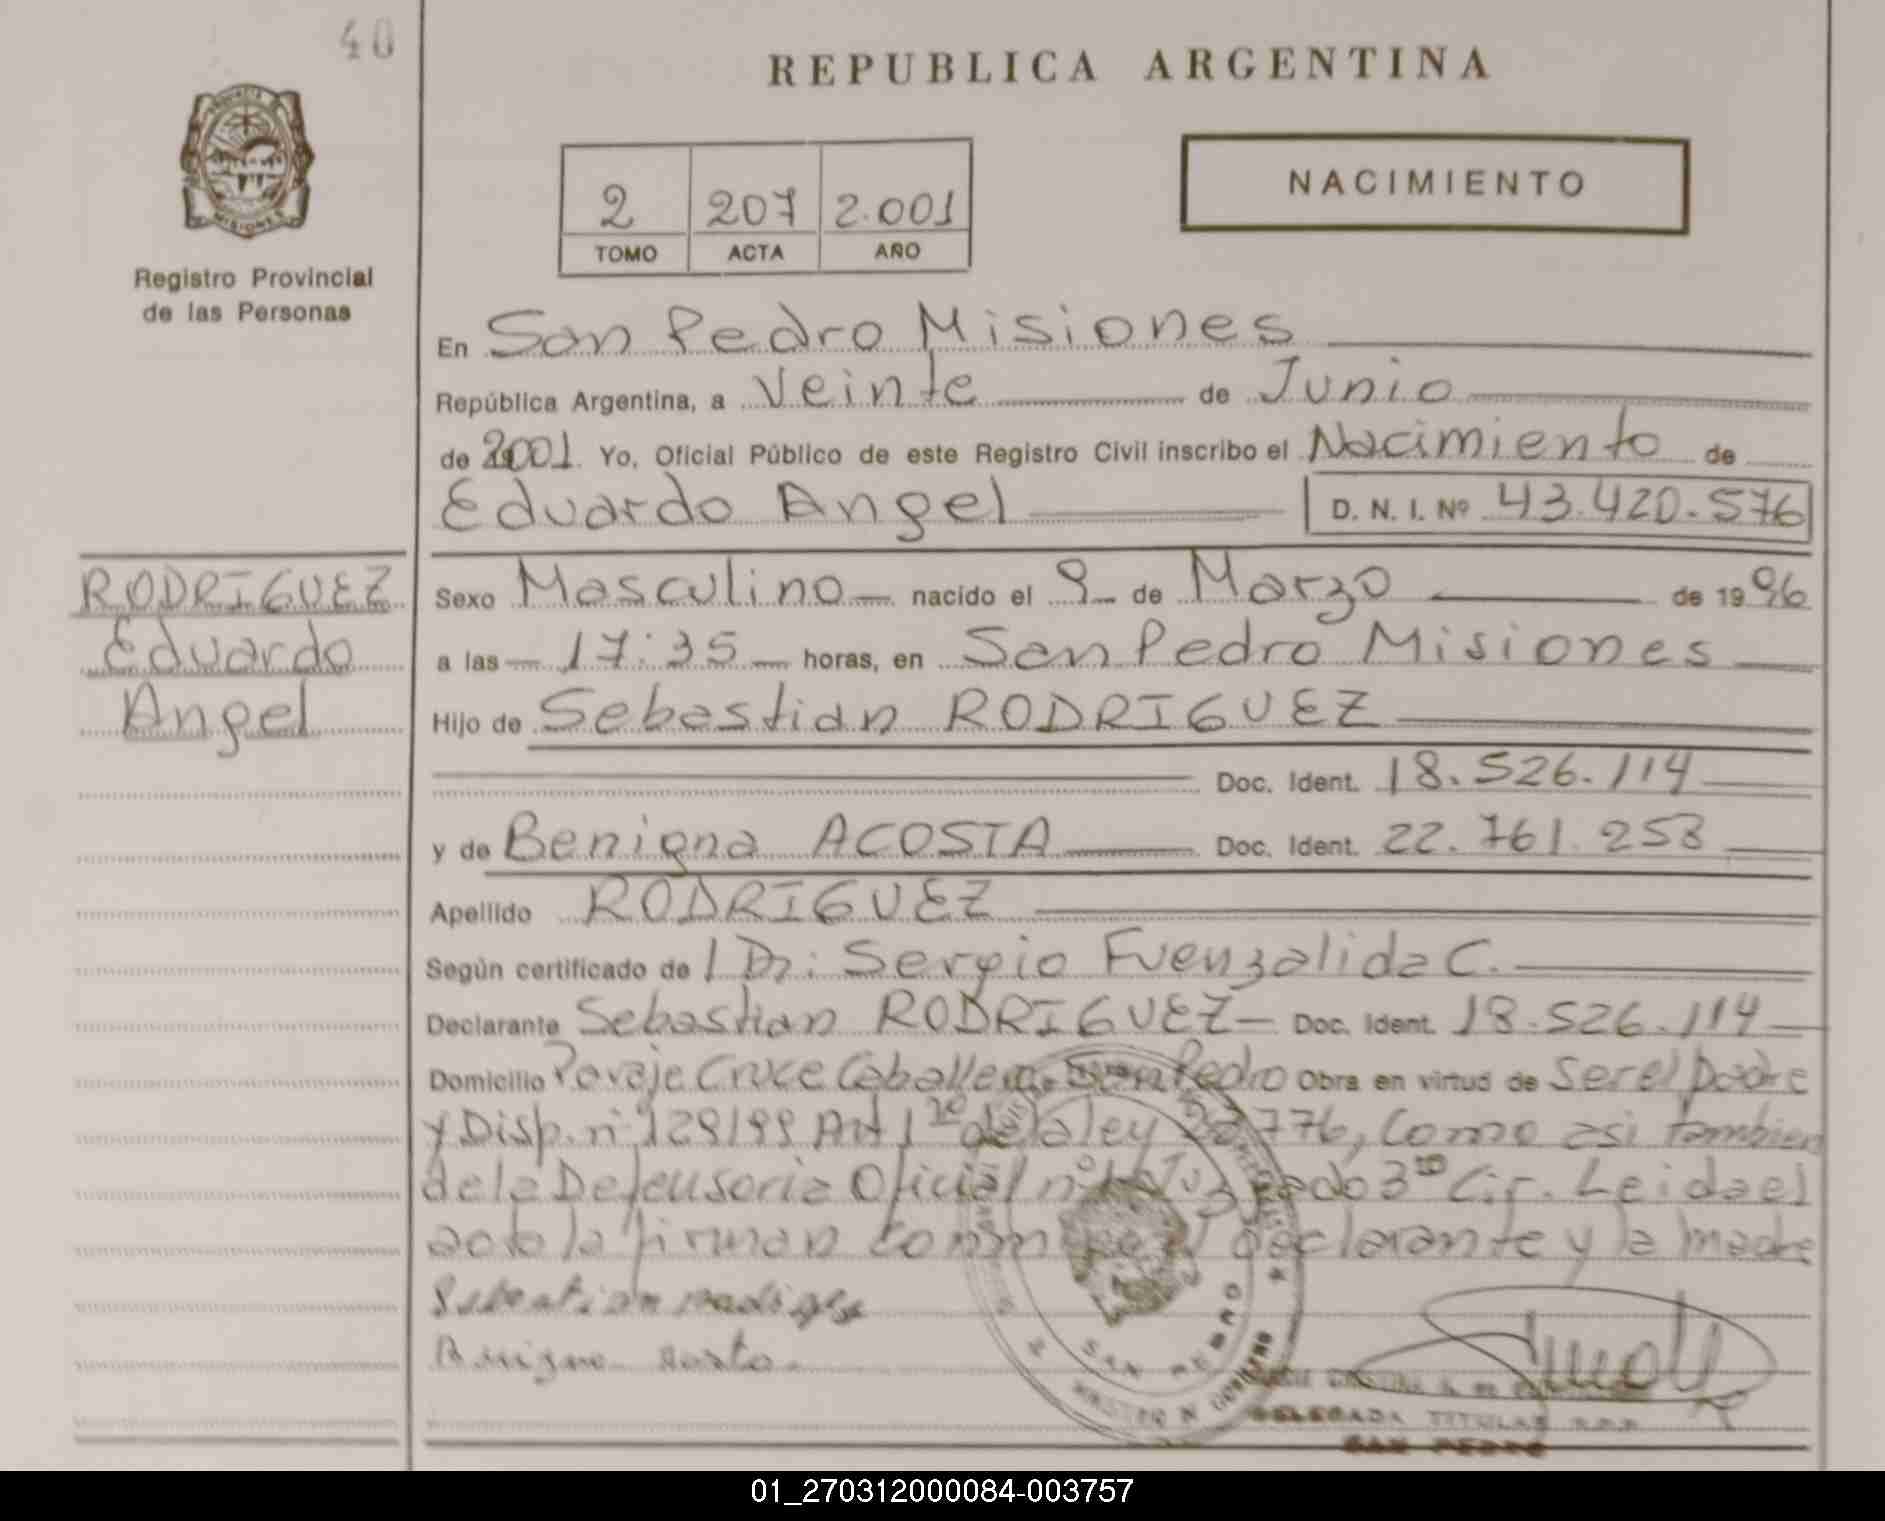 40
REPUBLICA ARGENTINA
PROVINCIA DE
MISIONES
Registro Provincial
de las Personas
2 207 2.001
TOMO ACTA AÑO
NACIMIENTO
En San Pedro Misiones
República Argentina, a Veinte de Junio
de 2001 Yo, Oficial Público de este Registro Civil inscribo el Nacimiento de
Eduardo Angel D. N. I. Nº 43.420.576
RODRIGUEZ
Eduardo
Angel
Sexo Masculino nacido el 9 de Marzo de 1996
a las 17:35 horas, en San Pedro Misiones
Hijo de Sebastian RODRIGUEZ
Doc. Ident. 18.526.114
y de Benigna ACOSTA Doc. Ident. 22.761.253
Apellido RODRIGUEZ
Según certificado de l Dr: Sergio Fuenzalida C.
Declarante Sebastian RODRIGUEZ Doc. Ident. 18.526.114
Domicilio Paraje Cruce Caballero San Pedro Obra en virtud de Ser el padre
y Disp. nº 129/99 Art 1º de la ley 776, Como asi tambien
de la Defensoria Oficial nº 1 Juzgado 3ra Cir. Leida el
acta la firman conmigo el declarante y la madre
SAN PEDRO
DELEGADA TITULAR R.P.P.
SAN PEDRO
01_270312000084-003757